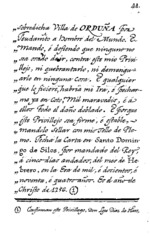 sobredicha Villa de ORDUÑA por
Feudamito a Hombre del Mundo. E
mando, e defiendo que ninguno no
sea osado de ir, contra este mio Privi-
llejo, ni quebrantarlo, ni demengu-
arlo en ninguna Cosa. E qualquier
que lo ficiere, habria mi Ira, e pechar-
me ya en coto, Mil maravedis, e a
ellos todo el daño doblado. E Porque
este Privillejo sea firme, e estable,
mandelo Sellar con mio Sello de Plo-
mo. Fecha la Carta en Santo Domin-
go de Silos, por mandado del Rey,
a cinco dias andados, del mes de He-
brero, en la Era de mil, e descientos, e
noventa, e quatro años. Es el año de
Christo de 1256. (1)
(1) Confirman este Privillejo, Don